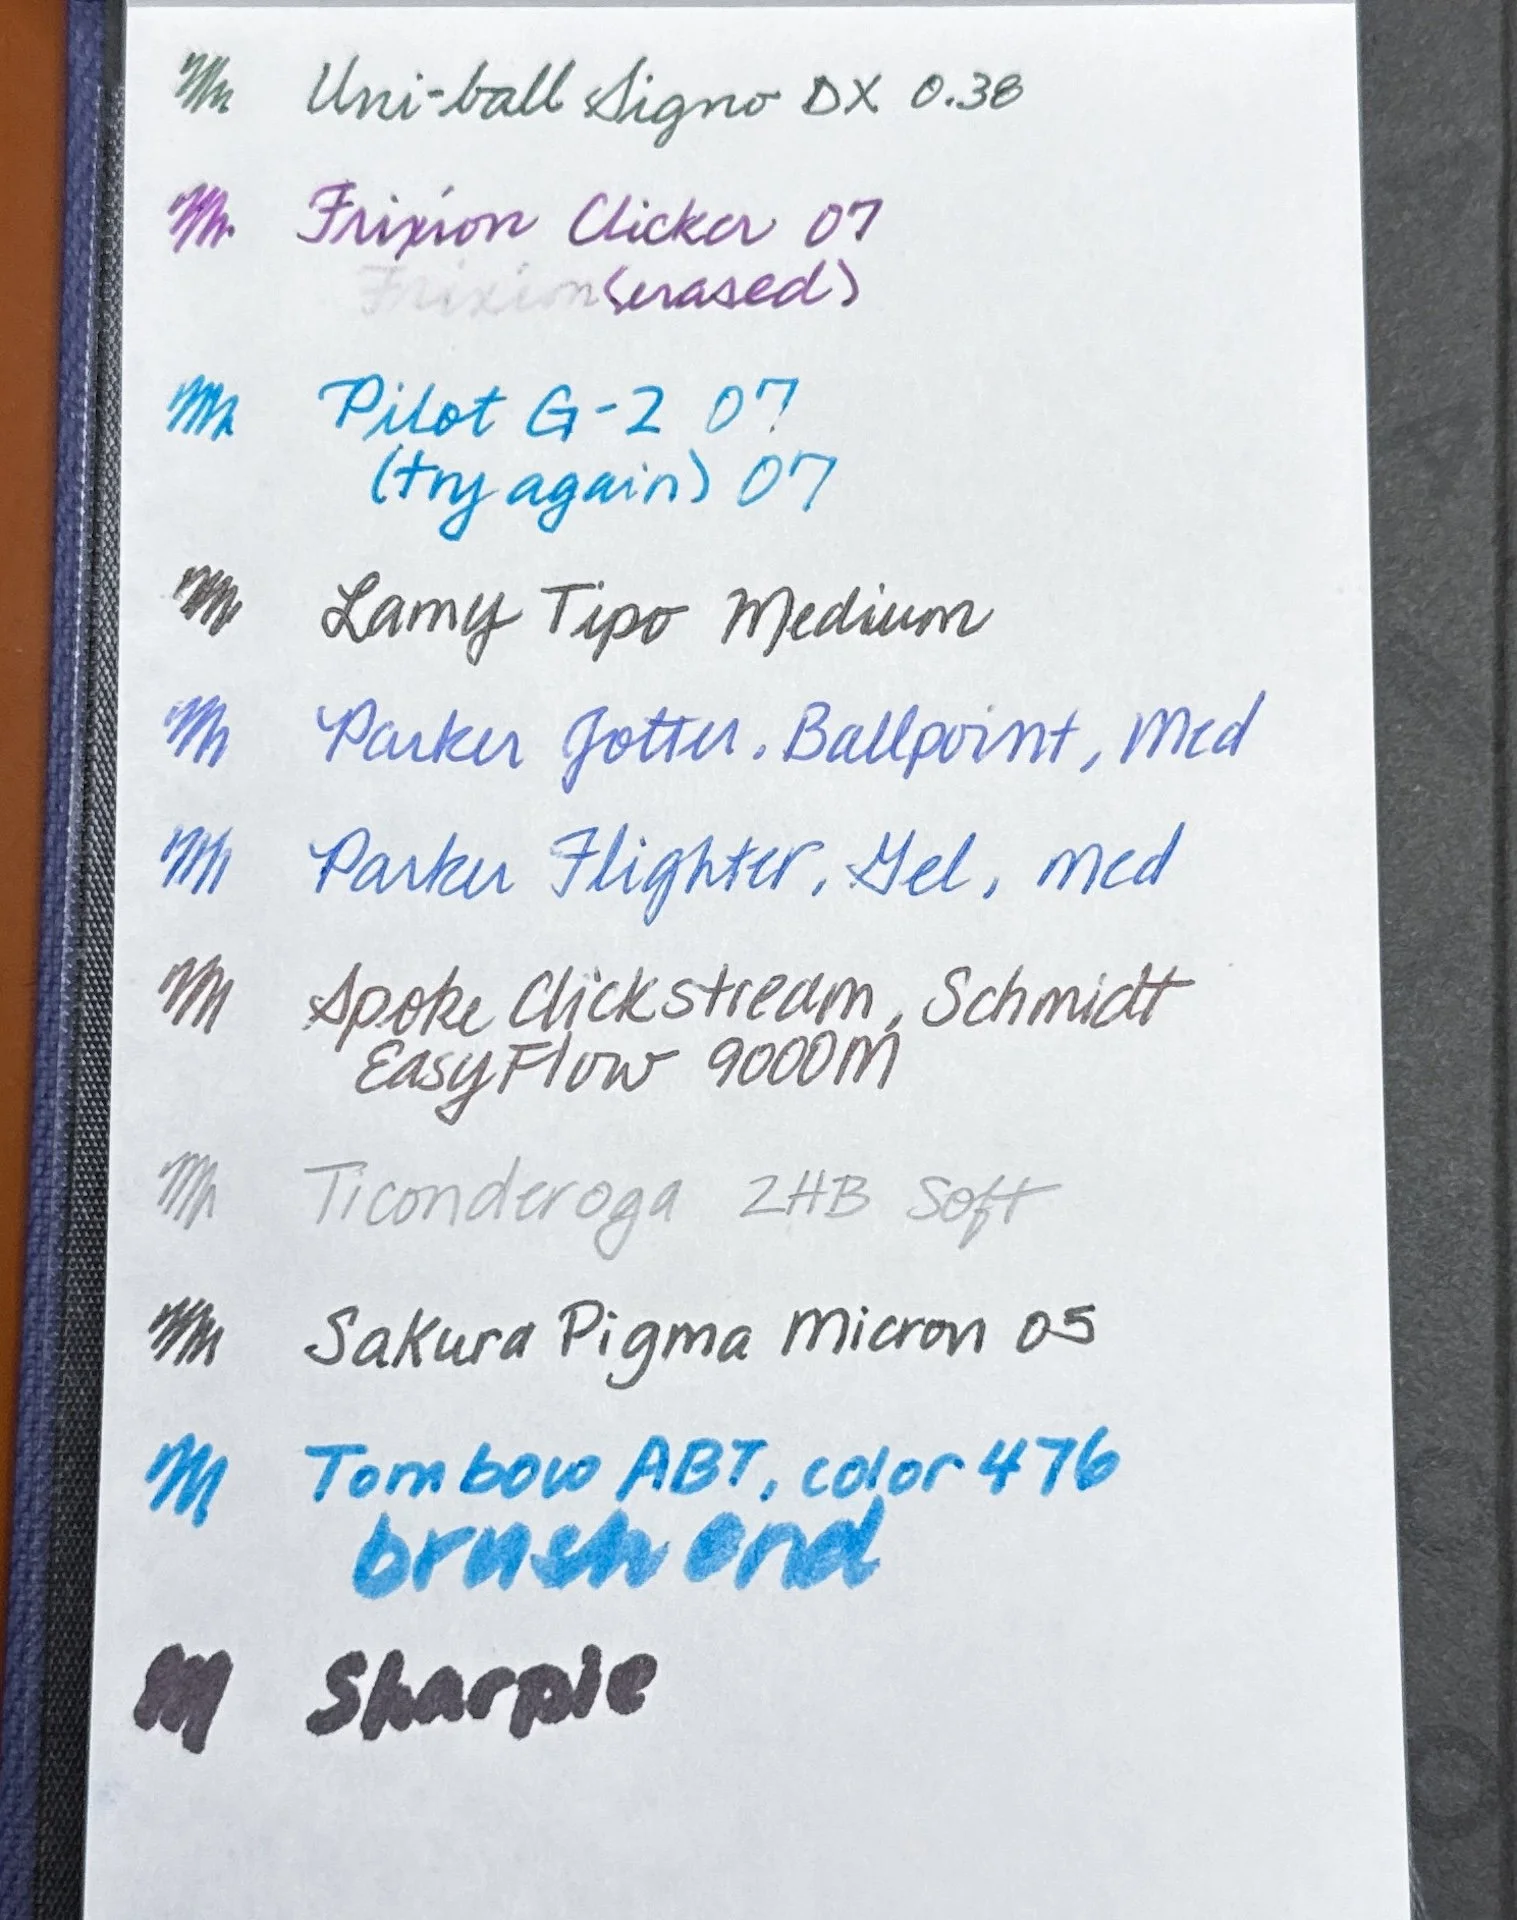 Uni-ball Signo DX 0.38
Frixion Clicker 07
Frixion (erased)
Pilot G-2 07
(try again) 07
Lamy Tipo Medium
Parker Jotter, Ballpoint, Med
Parker Flighter, Gel, med
Spoke Clickstream, Schmidt
EasyFlow 9000M
Ticonderoga 2HB Soft
Sakura Pigma Micron 05
Tombow ABT, color 476
brush end
Sharpie